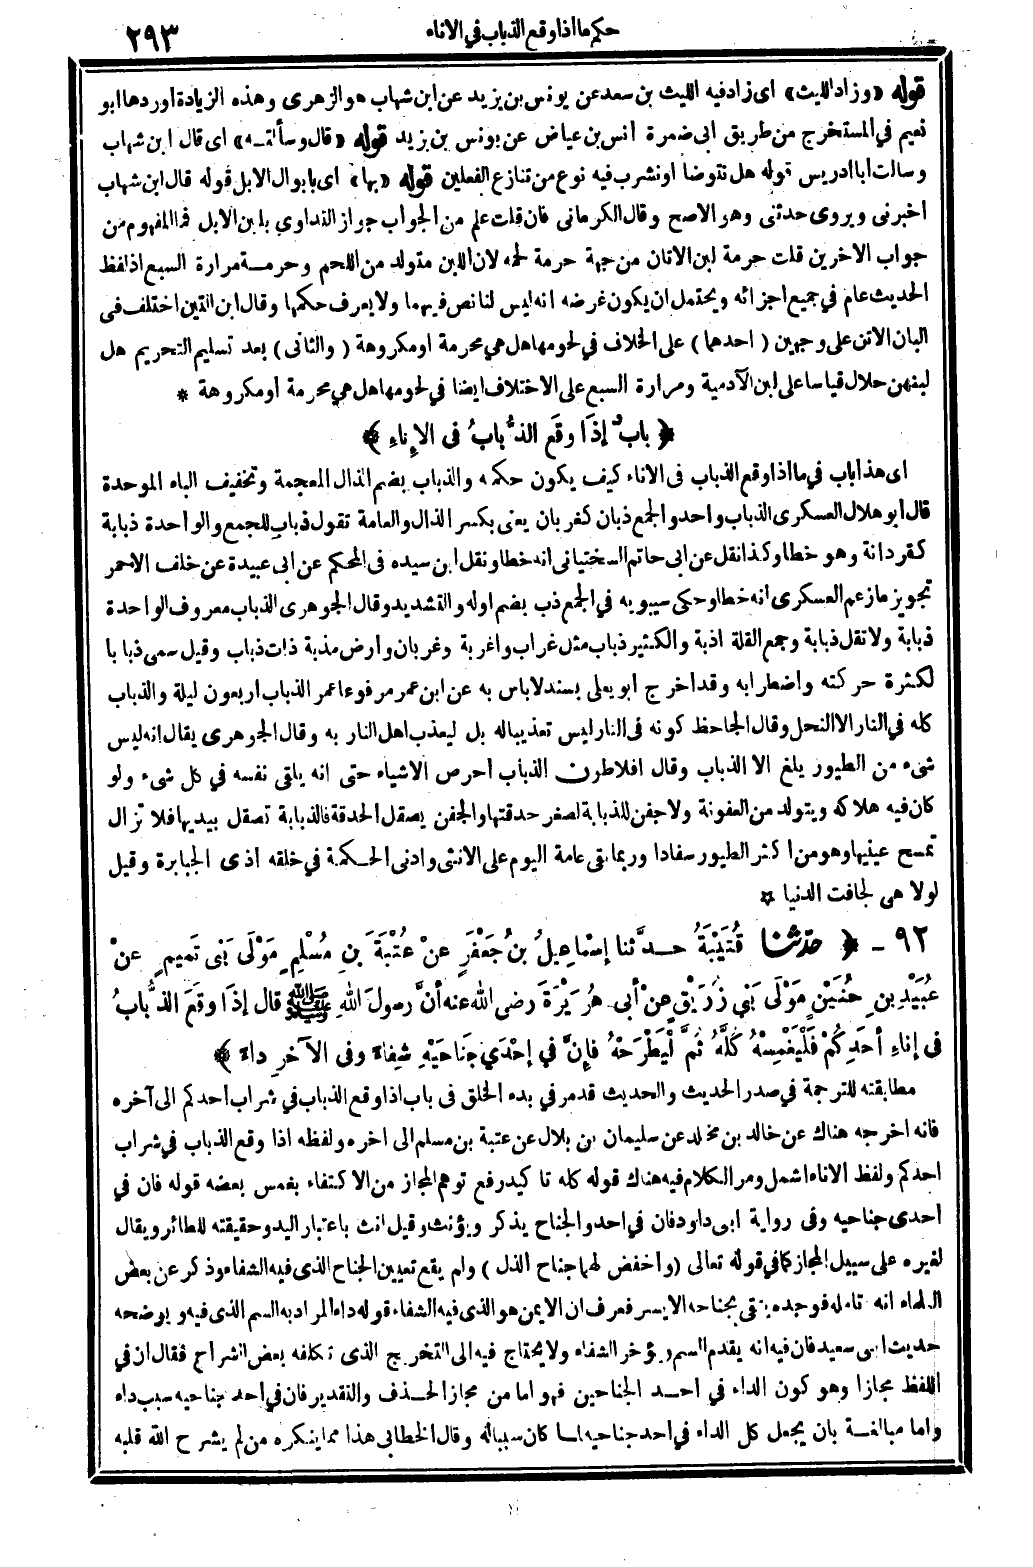 حكم ما اذا وقع الذباب في الاناء
٢٩٣
قوله «وزاد الليث» اى زاد فيه الليث بن سعد عن يونس بن يزيد عن ابن شهاب هو الزهرى وهذه الزيادة اوردها ابو
نعيم في المستخرج من طريق ابى ضمرة انس بن عياض عن يونس بن يزيد قوله «قال وسألته» اى قال ابن شهاب
وسالت ابا ادريس قوله هل نتوضا او نشرب فيه نوع من تنازع الفعلين قوله «بها» اى بابوال الابل قوله قال ابن شهاب
اخبرنى ويروى حدثنى وهو الاصح وقال الكرمانى فان قلت علم من الجواب جواز التداوي بلبن الابل فما المفهوم من
جواب الاخرين قلت حرمة لبن الاتان من جهة حرمة لحمه لان اللبن متولد من اللحم وحرمة مرارة السبع اذ لفظ
الحديث عام في جميع اجزائه ويحتمل ان يكون غرضه انه ليس لنا نص فيهما ولا يعرف حكمها وقال ابن التين اختلف فى
البان الاتن على وجهين ( احدهما ) على الخلاف في لحومها هل هي محرمة او مكروهة ( والثانى ) بعد تسليم التحريم هل
لبنهن حلال قياسا على لبن الآدمية ومرارة السبع على الاختلاف ايضا في لحومها هل هي محرمة أو مكروهة *
﴿ بابٌ إذَا وقَع الذُّبابُ فى الإِناءِ ﴾
اى هذا باب في ما اذا وقع الذباب فى الاناء كيف يكون حكمه والذباب بضم الذال المعجمة وتخفيف الباء الموحدة
قال أبو هلال العسكرى الذباب واحد والجمع ذبان كغربان يعنى بكسر الذال والعامة تقول ذباب للجمع والواحدة ذبابة
كقردانة وهو خطا وكذا نقل عن ابى حاتم السختيانى انه خطا ونقل ابن سيده فى المحكم عن ابى عبيدة عن خلف الاحمر
تجويز ما زعم العسكرى انه خطا وحكى سيبويه في الجمع ذب بضم اوله والتشديد وقال الجوهرى الذباب معروف الواحدة
ذبابة ولا تقل ذبابة وجمع القلة اذبة والكثير ذباب مثل غراب واغربة وغربان وارض مذبة ذات ذباب وقيل سمى ذبابا
لكثرة حركته واضطرابه وقد اخرج ابو يعلى بسند لا باس به عن ابن عمر مرفوعا عمر الذباب اربعون ليلة والذباب
كله في النار الا النحل وقال الجاحظ كونه فى النار ليس تعذيبا له بل ليعذب اهل النار به وقال الجوهرى يقال انه ليس
شىء من الطيور يلغ الا الذباب وقال افلاطون الذباب أحرص الاشياء حتى انه يلقى نفسه في كل شىء ولو
كان فيه هلاكه ويتولد من العفونة ولا جفن للذبابة لصغر حدقتها والجفن يصقل الحدقة فالذبابة تصقل بيديها فلا تزال
تمسح عينيها وهو من اكثر الطيور سفادا وربما بقى عامة اليوم على الانثى وادنى الحكمة في خلقه اذى الجبابرة وقيل
لولا هى لجافت الدنيا ۞
٩٢ – ﴿ حدّثنا قُتَيْبَةُ حدَّثنا إسْماعِيلُ بنُ جَعْفَرٍ عنْ عُتْبَةَ بنِ مُسْلِمٍ مَوْلَى بَنى تَمِيمٍ عنْ
عُبَيْدِ بنِ حُنَيْنٍ مَوْلَى بَنِي زُرَيْقٍ عنْ أبى هُرَيْرَةَ رضى الله عنه أنَّ رسولَ اللهِ ﷺ قال إذَا وقَعَ الذُّبابُ
فى إناءِ أحَدِكُمْ فَلْيَغْمِسْهُ كُلَّهُ ثُمَّ لْيَطْرَحْهُ فإنَّ فِي إحْدَي جَناحَيْهِ شِفاءً وفى الآخَرِ داءً ﴾
مطابقته للترجمة في صدر الحديث والحديث قد مر في بدء الخلق فى باب اذا وقع الذباب في شراب احدكم الى آخره
فانه اخرجه هناك عن خالد بن مخلد عن سليمان بن بلال عن عتبة بن مسلم الى اخره ولفظه اذا وقع الذباب في شراب
احدكم ولفظ الاناء اشمل ومر الكلام فيه هناك قوله كله تا كيد رفع توهم المجاز من الاكتفاء بغمس بعضه قوله فان في
أحدى جناحيه وفى رواية ابى داود فان في احد والجناح يذكر ويؤنث وقيل انث باعتبار اليد وحقيقته للطائر ويقال
لغيره على سبيل المجاز كما في قوله تعالى (وأخفض لهما جناح الذل ) ولم يقع تعيين الجناح الذى فيه الشفاء وذكر عن بعض
العلماء انه تامله فوجده يتقى بجناحه الايسر فعرف ان الايمن هو الذى فيه الشفاء قوله داء المراد به السم الذى فيه ويوضحه
حديث ابى سعيد فان فيه انه يقدم السم ويؤخر الشفاء ولا يحتاج فيه الى التخريج الذى تكلفه بعض الشراح فقال ان في
اللفظ مجازا وهو كون الداء في احد الجناحين فهو اما من مجاز الحذف والتقدير فان في احد جناحيه سبب داء
واما مبالغة بان يجعل كل الداء في احد جناحيه لما كان سببا له وقال الخطابى هذا مما ينكره من لم يشرح الله قلبه